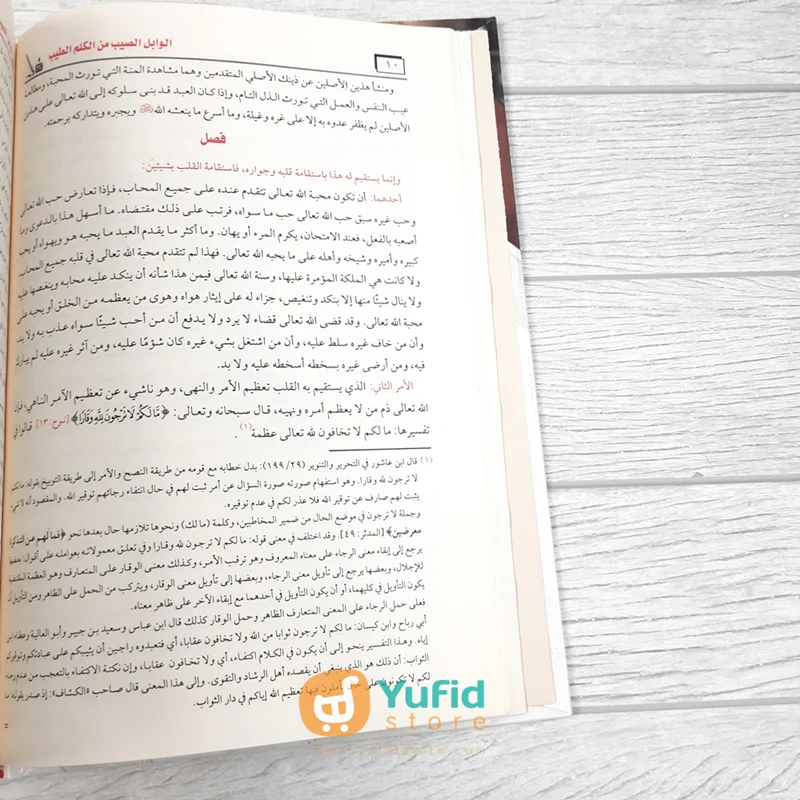 ١٠
الوابل الصيب من الكلم الطيب
ومنشأ هذين الأصلين عن ذينك الأصلي المتقدمين وهما مشاهدة المنة التي تورث المحبة، ومطالعة
عيب النفس والعمل التي تورث الذل التام، وإذا كان العبد قد بنى سلوكه إلى الله تعالى على هذين
الأصلين لم يظفر عدوه به إلا على غره وغيلة، وما أسرع ما ينعشه الله ﷻ ويجبره ويتداركه برحمته.
فصل
وإنما يستقيم له هذا باستقامة قلبه وجواره، فاستقامة القلب بشيئين:
أحدهما: أن تكون محبة الله تعالى تتقدم عنده على جميع المحاب، فإذا تعارض حب الله تعالى
وحب غيره سبق حب الله تعالى حب ما سواه، فرتب على ذلك مقتضاه. ما أسهل هذا بالدعوى وما
أصعبه بالفعل، فعند الامتحان، يكرم المرء أو يهان. وما أكثر ما يقدم العبد ما يحبه هو ويهواه أو يحبه
كبيره وأميره وشيخه وأهله على ما يحبه الله تعالى. فهذا لم تتقدم محبة الله تعالى في قلبه جميع المحاب
ولا كانت هي الملكة المؤمرة عليها، وسنة الله تعالى فيمن هذا شأنه أن ينكد عليه محابه وينغصها عليه
ولا ينال شيئًا منها إلا بنكد وتنغيص، جزاء له على إيثار هواه وهوى من يعظمه من الخلق أو يحبه على
محبة الله تعالى. وقد قضى الله تعالى قضاء لا يرد ولا يدفع أن من أحب شيئًا سواه عذب به ولا بد،
وأن من خاف غيره سلط عليه، وأن من اشتغل بشيء غيره كان شؤمًا عليه، ومن آثر غيره عليه لم يبارك
فيه، ومن أرضى غيره بسخطه أسخطه عليه ولا بد.
الأمر الثاني: الذي يستقيم به القلب تعظيم الأمر والنهى، وهو ناشيء عن تعظيم الآمر الناهي، فإن
الله تعالى ذم من لا يعظم أمره ونهيه، قال سبحانه وتعالى: ﴿مَّا لَكُمْ لَا تَرْجُونَ لِلَّهِ وَقَارًا﴾ [نوح: ١٣] قالوا في
تفسيرها: ما لكم لا تخافون لله تعالى عظمة (١).
(١) قال ابن عاشور في التحرير والتنوير (٢٩/ ١٩٩): بدل خطابه مع قومه من طريقة النصح والأمر إلى طريقة التوبيخ بقوله: ما لكم
لا ترجون لله وقارا. وهو استفهام صورته صورة السؤال عن أمر ثبت لهم في حال انتفاء رجائهم توقير الله. والمقصود أنه لا شيء
يثبت لهم صارف عن توقير الله فلا عذر لكم في عدم توقيره.
وجملة لا ترجون في موضع الحال من ضمير المخاطبين، وكلمة (ما لك) ونحوها تلازمها حال بعدها نحو ﴿فما لهم عن التذكرة
معرضين﴾ [المدثر: ٤٩]. وقد اختلف في معنى قوله: ما لكم لا ترجون لله وقارا وفي تعلق معمولاته بعوامله على أقوال: بعضها
يرجع إلى إبقاء معنى الرجاء على معناه المعروف وهو ترقب الأمر، وكذلك معنى الوقار على المتعارف وهو العظمة المقتضية
للإجلال، وبعضها يرجع إلى تأويل معنى الرجاء، وبعضها إلى تأويل معنى الوقار، ويتركب من الحمل على الظاهر ومن التأويل أن
يكون التأويل في كليهما، أو أن يكون التأويل في أحدهما مع إبقاء الآخر على ظاهر معناه.
فعلى حمل الرجاء على المعنى المتعارف الظاهر وحمل الوقار كذلك قال ابن عباس وسعيد بن جبير وأبو العالية وعطاء بن
أبي رباح وابن كيسان: ما لكم لا ترجون ثوابا من الله ولا تخافون عقابا، أي فتعبدوه راجين أن يثيبكم على عبادتكم وتوقيركم
إياه. وهذا التفسير ينحو إلى أن يكون في الكلام اكتفاء، أي ولا تخافون عقابا، وإن نكتة الاكتفاء بالتعجب من عدم رجاء
الثواب: أن ذلك هو الذي ينبغي أن يقصده أهل الرشاد والتقوى. وإلى هذا المعنى قال صاحب «الكشاف»: إذ صدر بقوله: ما
لكم لا تكونون على حال تأملون فيها تعظيم الله إياكم في دار الثواب.
Yufid
store
www.yufidstore.com